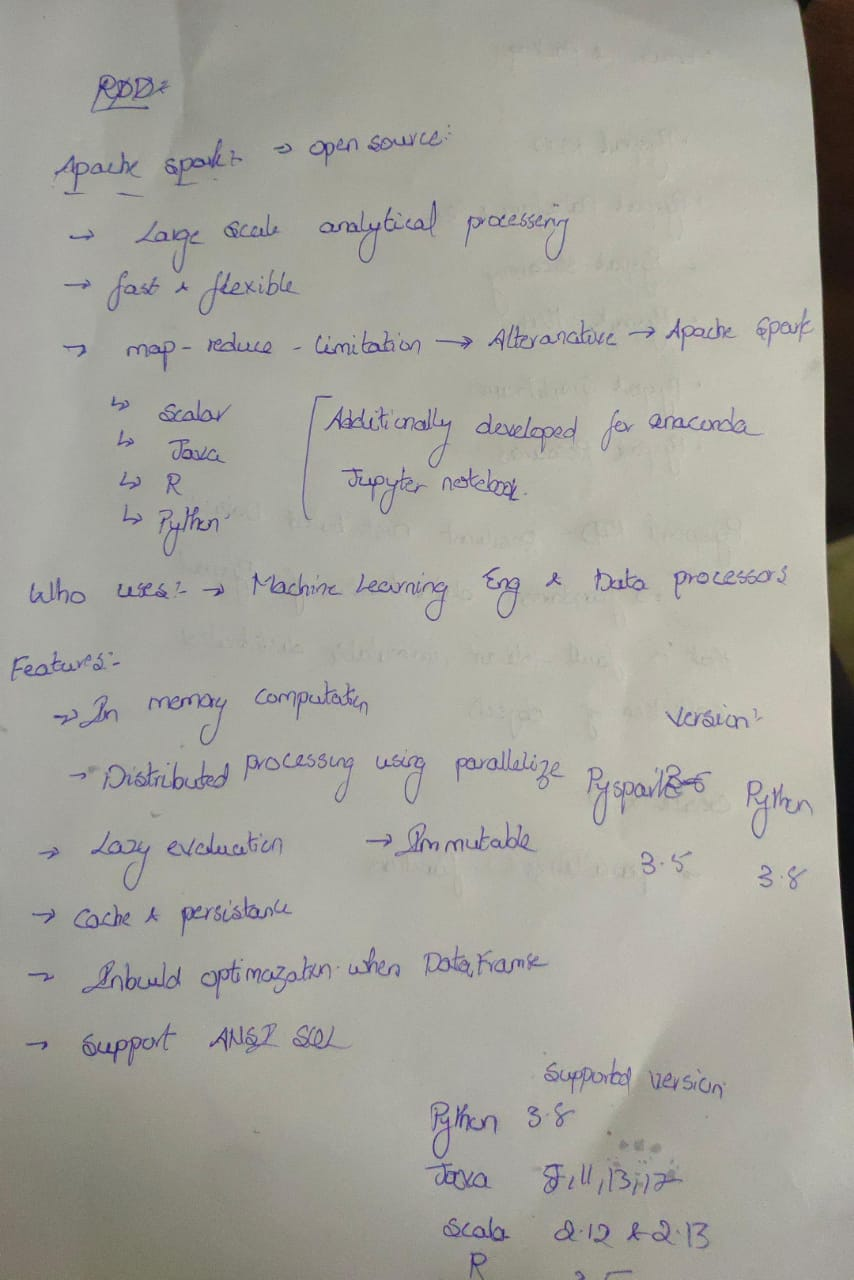 RDD:
Apache spark:- → open source:
→ Large scale analytical processing
→ fast & flexible
→ map - reduce - limitation → Alteranative → Apache spark
↳ Scalar
↳ Java
↳ R
↳ Python
Additionally developed for anaconda
Jupyter notebook.
Who uses:- → Machine Learning Eng & Data processors
Features:-
→ In memory computation
→ Distributed processing using parallelize
→ Lazy evaluation → Immutable
→ Cache & persistance
→ Inbuild optimazation when DataFrame
→ Support ANSI SQL
Version:
Pyspark Python
3.5 3.8
Supported version
Python 3.8
Java 8, 11, 13, 17
Scala 2.12 & 2.13
R 3.5